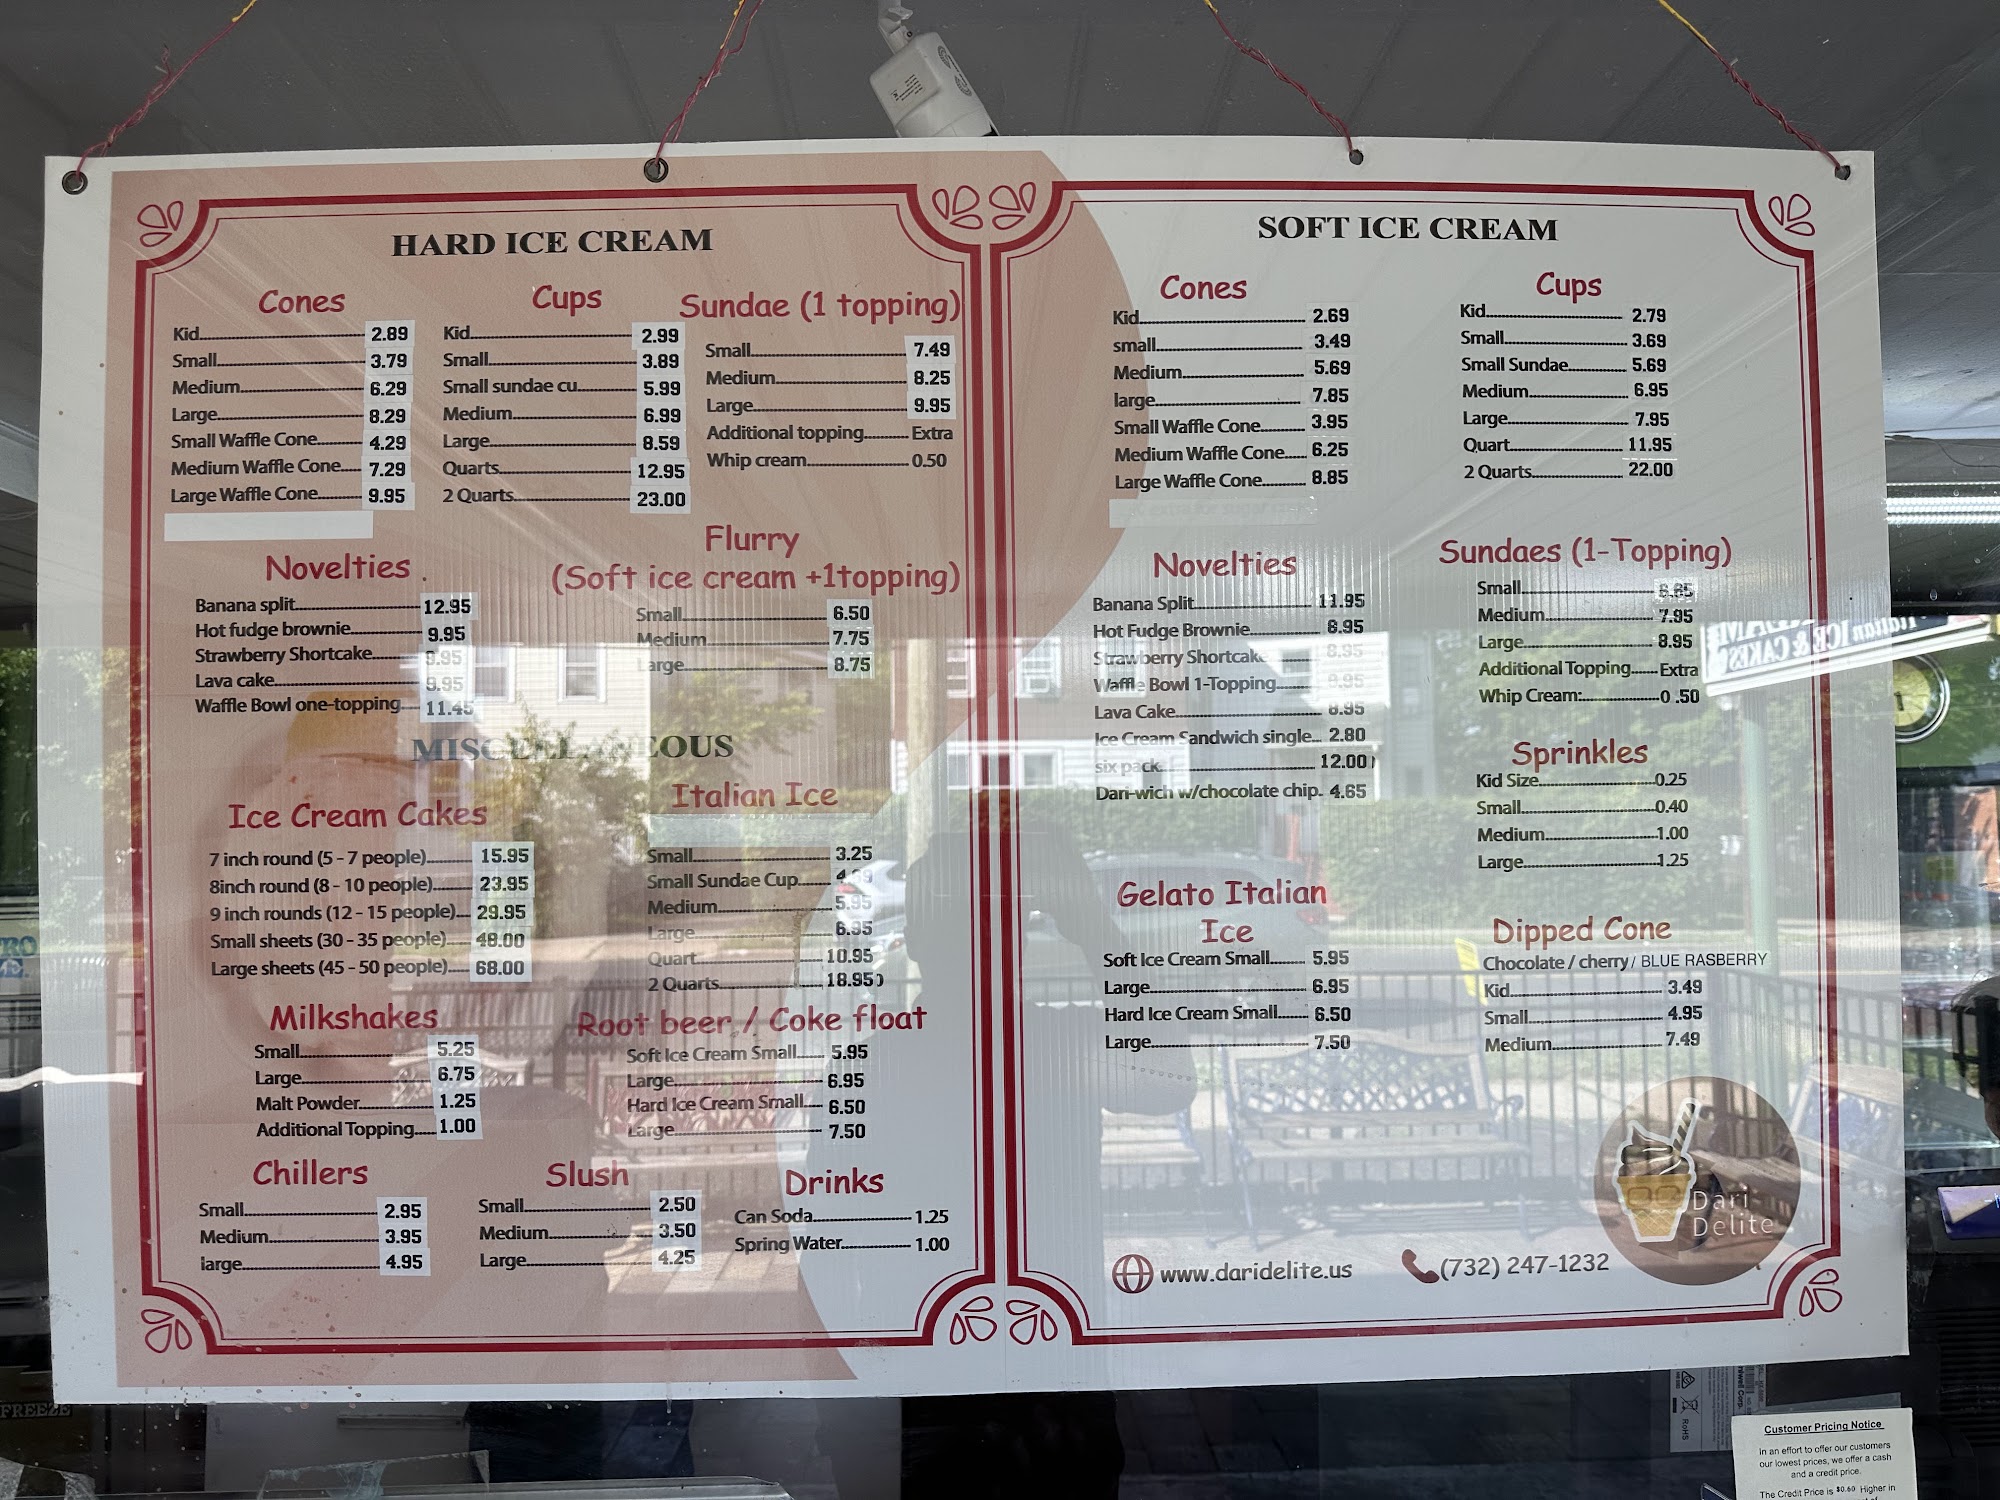 HARD ICE CREAM
Cones
Kid 2.89
Small 3.79
Medium 6.29
Large 8.29
Small Waffle Cone 4.29
Medium Waffle Cone 7.29
Large Waffle Cone 9.95
Cups
Kid 2.99
Small 3.89
Small sundae cu 5.99
Medium 6.99
Large 8.59
Quarts 12.95
2 Quarts 23.00
Sundae (1 topping)
Small 7.49
Medium 8.25
Large 9.95
Additional topping Extra
Whip cream 0.50
Novelties
Banana split 12.95
Hot fudge brownie 9.95
Strawberry Shortcake 9.95
Lava cake 9.95
Waffle Bowl one-topping 11.45
Flurry
(Soft ice cream +1topping)
Small 6.50
Medium 7.75
Large 8.75
MISCELLANEOUS
Ice Cream Cakes
7 inch round (5 - 7 people) 15.95
8inch round (8 - 10 people) 23.95
9 inch rounds (12 - 15 people) 29.95
Small sheets (30 - 35 people) 48.00
Large sheets (45 - 50 people) 68.00
Italian Ice
Small 3.25
Small Sundae Cup
Medium 5.95
Large
Quart 10.95
2 Quarts 18.95
Milkshakes
Small 5.25
Large 6.75
Malt Powder 1.25
Additional Topping 1.00
Root beer / Coke float
Soft Ice Cream Small 5.95
Large 6.95
Hard Ice Cream Small 6.50
Large 7.50
Chillers
Small 2.95
Medium 3.95
large 4.95
Slush
Small 2.50
Medium 3.50
Large 4.25
Drinks
Can Soda 1.25
Spring Water 1.00
SOFT ICE CREAM
Cones
Kid 2.69
small 3.49
Medium 5.69
large 7.85
Small Waffle Cone 3.95
Medium Waffle Cone 6.25
Large Waffle Cone 8.85
Cups
Kid 2.79
Small 3.69
Small Sundae 5.69
Medium 6.95
Large 7.95
Quart 11.95
2 Quarts 22.00
Novelties
Banana Split 11.95
Hot Fudge Brownie 8.95
Strawberry Shortcake 8.95
Waffle Bowl 1-Topping
Lava Cake 8.95
Ice Cream Sandwich single 2.80
six pack 12.00
Dari-wich w/chocolate chip 4.65
Sundaes (1-Topping)
Small
Medium 7.95
Large 8.95
Additional Topping Extra
Whip Cream: 0 .50
Sprinkles
Kid Size 0.25
Small 0.40
Medium 1.00
Large 1.25
Gelato Italian
Ice
Soft Ice Cream Small 5.95
Large 6.95
Hard Ice Cream Small 6.50
Large 7.50
Dipped Cone
Chocolate / cherry / BLUE RASBERRY
Kid 3.49
Small 4.95
Medium 7.49
Dari
Delite
www.daridelite.us
(732) 247-1232
FREEZE
RoHS
Customer Pricing Notice
In an effort to offer our customers
our lowest prices, we offer a cash
and a credit price.
The Credit Price is $0.60 Higher in